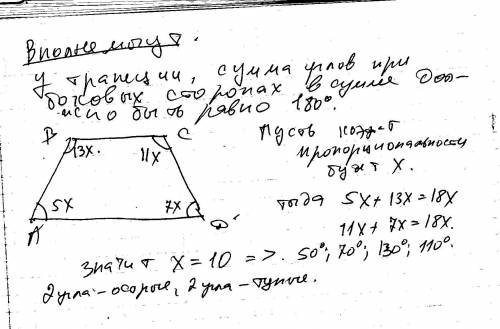 Вполне могут.
У трапеции, сумма углов при
боковых сторонах в сумме долж-
но быть равно 180°.
Пусть коэф-т
пропорциональности
будет X.
B
C
13x
11x
5x
7x
A
D
тогда 5x + 13x = 18x
11x + 7x = 18x.
Значит x = 10 => 50°; 70°; 130°; 110°.
2 угла - острые, 2 угла - тупые.